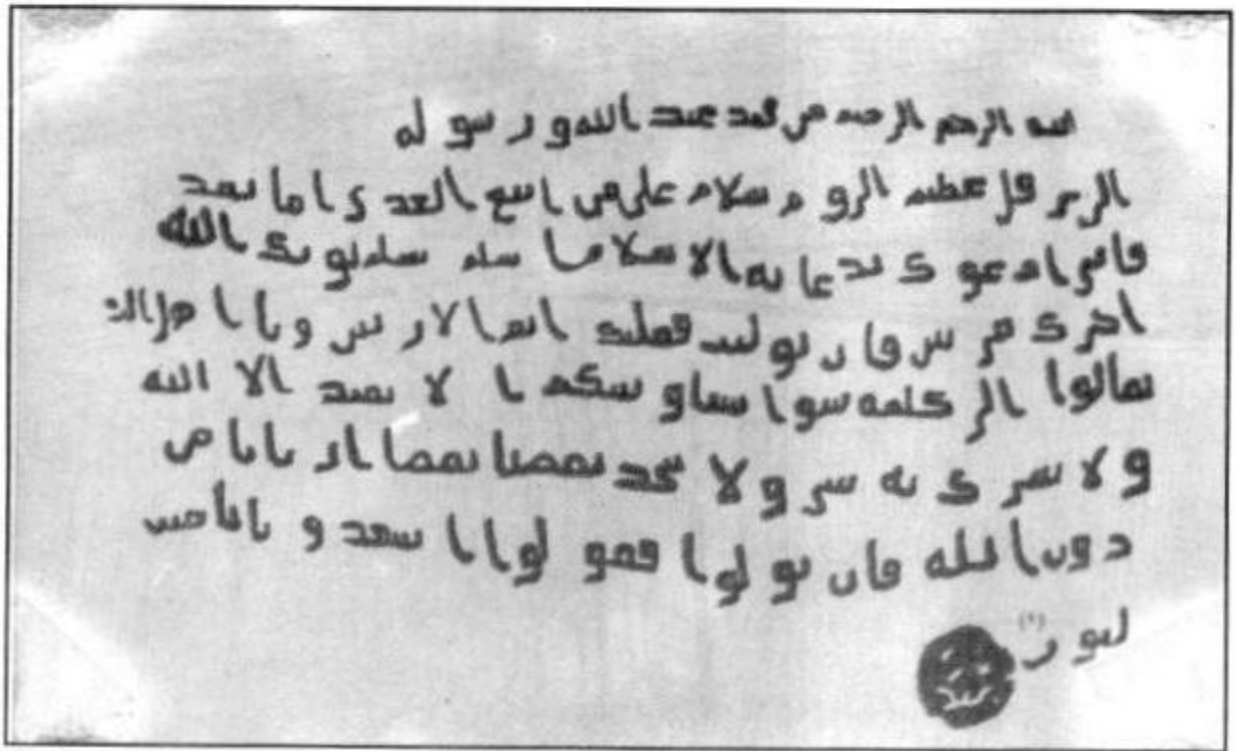 بسم الله الرحمن الرحيم من محمد عبد الله ورسوله
الى هرقل عظيم الروم سلام على من اتبع الهدى اما بعد
فاني ادعوك بدعاية الاسلام اسلم تسلم يوتك الله
اجرك مرتين فان توليت فعليك اثم الاريسين ويا اهل
تعالوا الى كلمة سوا بيننا وبينكم ا لا نعبد الا الله
ولا نشرك به شي ولا يتخذ بعضنا بعضا اربابا من
دون الله فان تولوا فقولوا اشهدوا بانا مس
لمون (١)